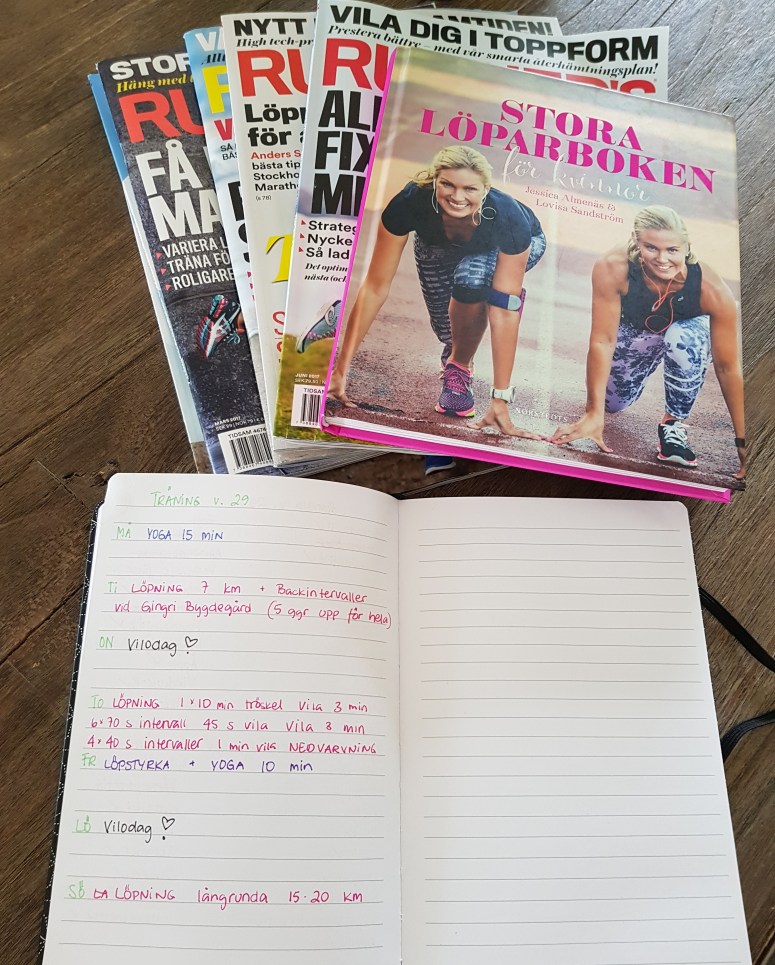 STOR
Häng med
RU
FÅ
MA
VARIERA
TRÄNA FÖ
ROLIGARE
MARS 2017
TIDSAM 4674
NYTT
High tech-pr
RU
Löpp
för a
Anders S
bästa tip
Stockho
Maratho
(s 78)
VILA DIG I TOPPFORM
Prestera bättre – med vår smarta återhämtningsplan!
RU
ER'S
ALL
FIX
Strateg
Nycke
Så lad
Det optim
nästa (oc
JUNI 2017
TIDSAM
AMTIDEN!
STORA
LÖPARBOKEN
för kvinnor
Jessica Almenäs &
Lovisa Sandström
NORSTEDTS
TRÄNING v. 29
MÅ YOGA 15 MIN
TI LÖPNING 7 km + Backintervaller
vid Gingri Bygdegård (5 ggr upp för hela)
ON Vilodag ♡
TO LÖPNING 1×10 min tröskel Vila 3 min
6×70 s intervall 45 s vila Vila 3 min
4×40 s intervaller 1 min vila NEDVARVNING
FR LÖPSTYRKA + YOGA 10 min
LÖ Vilodag ♡
SÖ LÖPNING långrunda 15-20 km